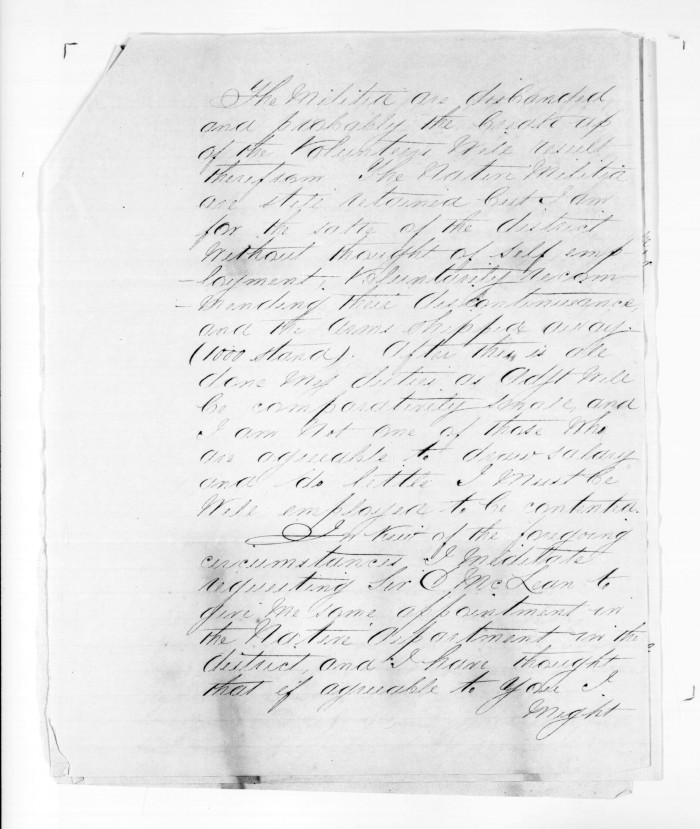 The Militia are disbanded
and probably the break up
of the Volunteers will result
therefrom The Native Militia
are still retained but I am
for the sake of the district
without thought of self emp
-loyment, voluntarily recom
-mending their discontinuance,
and the arms shipped away.
(1000 stand). After this is all
done my duties as Adjt will
be comparatively small, and
I am not one of those who
are agreeable to draw salary
and do little I must be
well employed to be contented.
In view of the foregoing
circumstances I meditate
requesting Sir D McLean to
give me some appointment in
the Native department in the
district, and I have thought
that if agreeable to you I
might